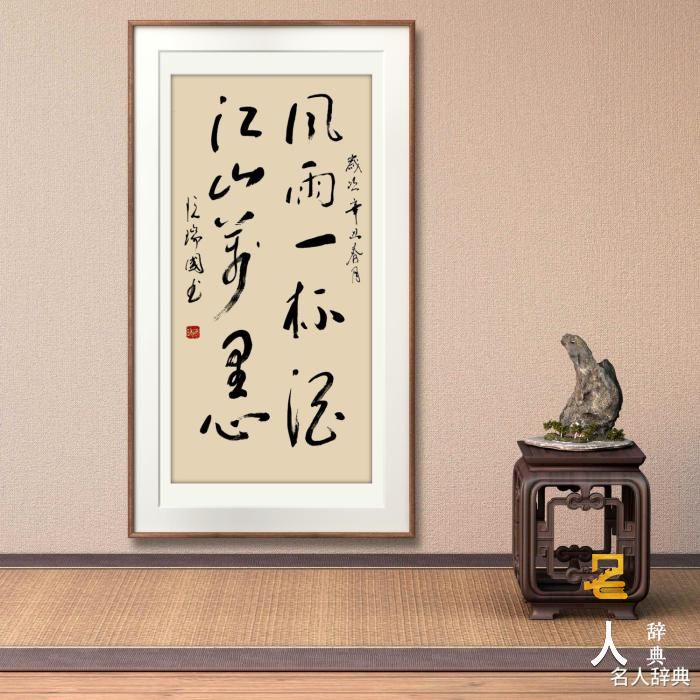 歲次辛丑春月
风雨一杯酒
江山萬里心
瑞國书
名
人
辞典
名人辞典